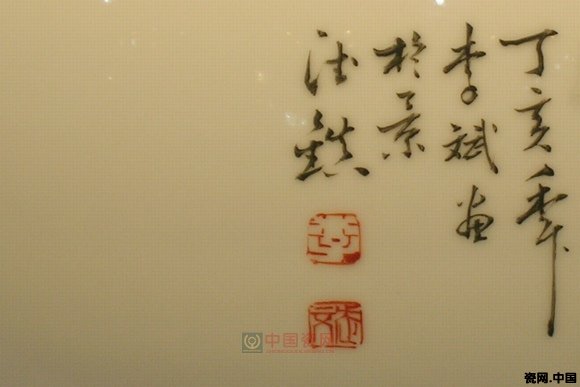 丁亥年
李斌画
於景
德鎮
中国瓷网
瓷网.中国